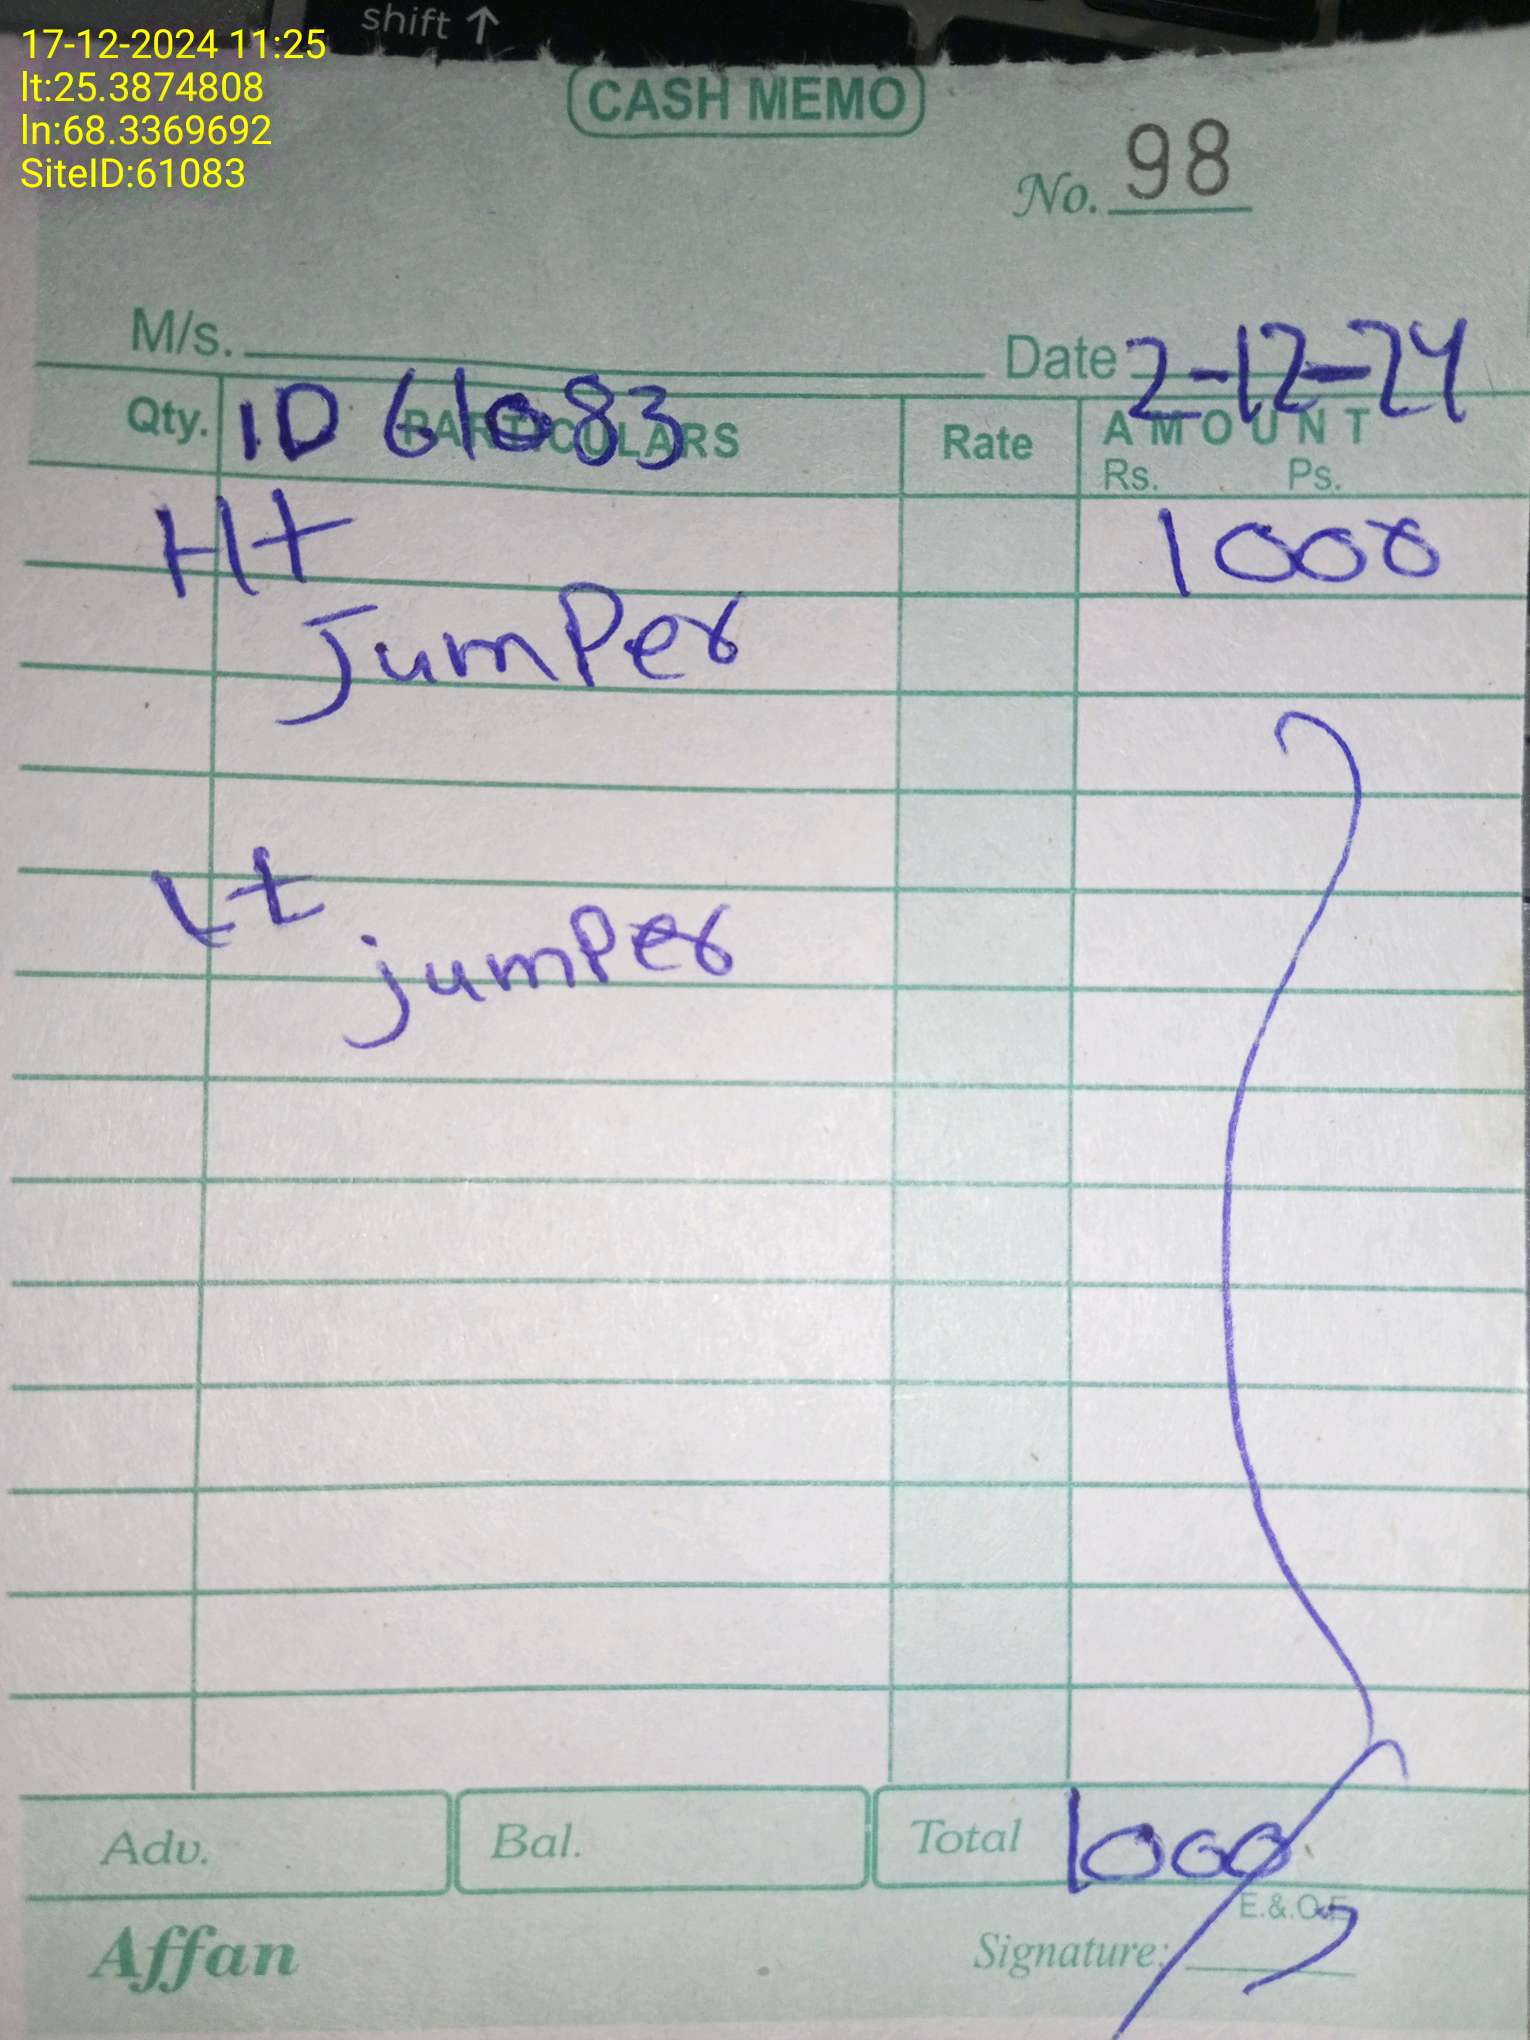 shift ↑
17-12-2024 11:25
lt:25.3874808
ln:68.3369692
SiteID:61083
CASH MEMO
No. 98
M/s. Date 2-12-24
Qty. PARTICULARS Rate AMOUNT
Rs. Ps.
ID 61083
Ht 1000
Jumper
Lt
jumper
Adv. Bal. Total 1000
E.&.O.E
Affan Signature: